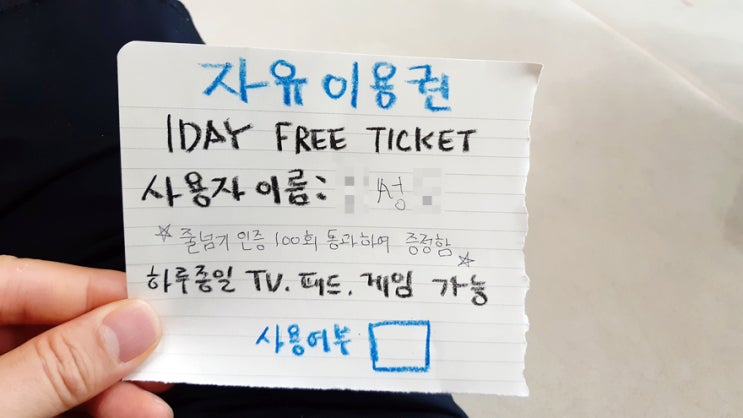 자유이용권
1DAY FREE TICKET
사용자 이름: 성
☆ 줄넘기 인증 100회 통과하여 증정함 ☆
하루종일 TV. 패드. 게임 가능
사용여부